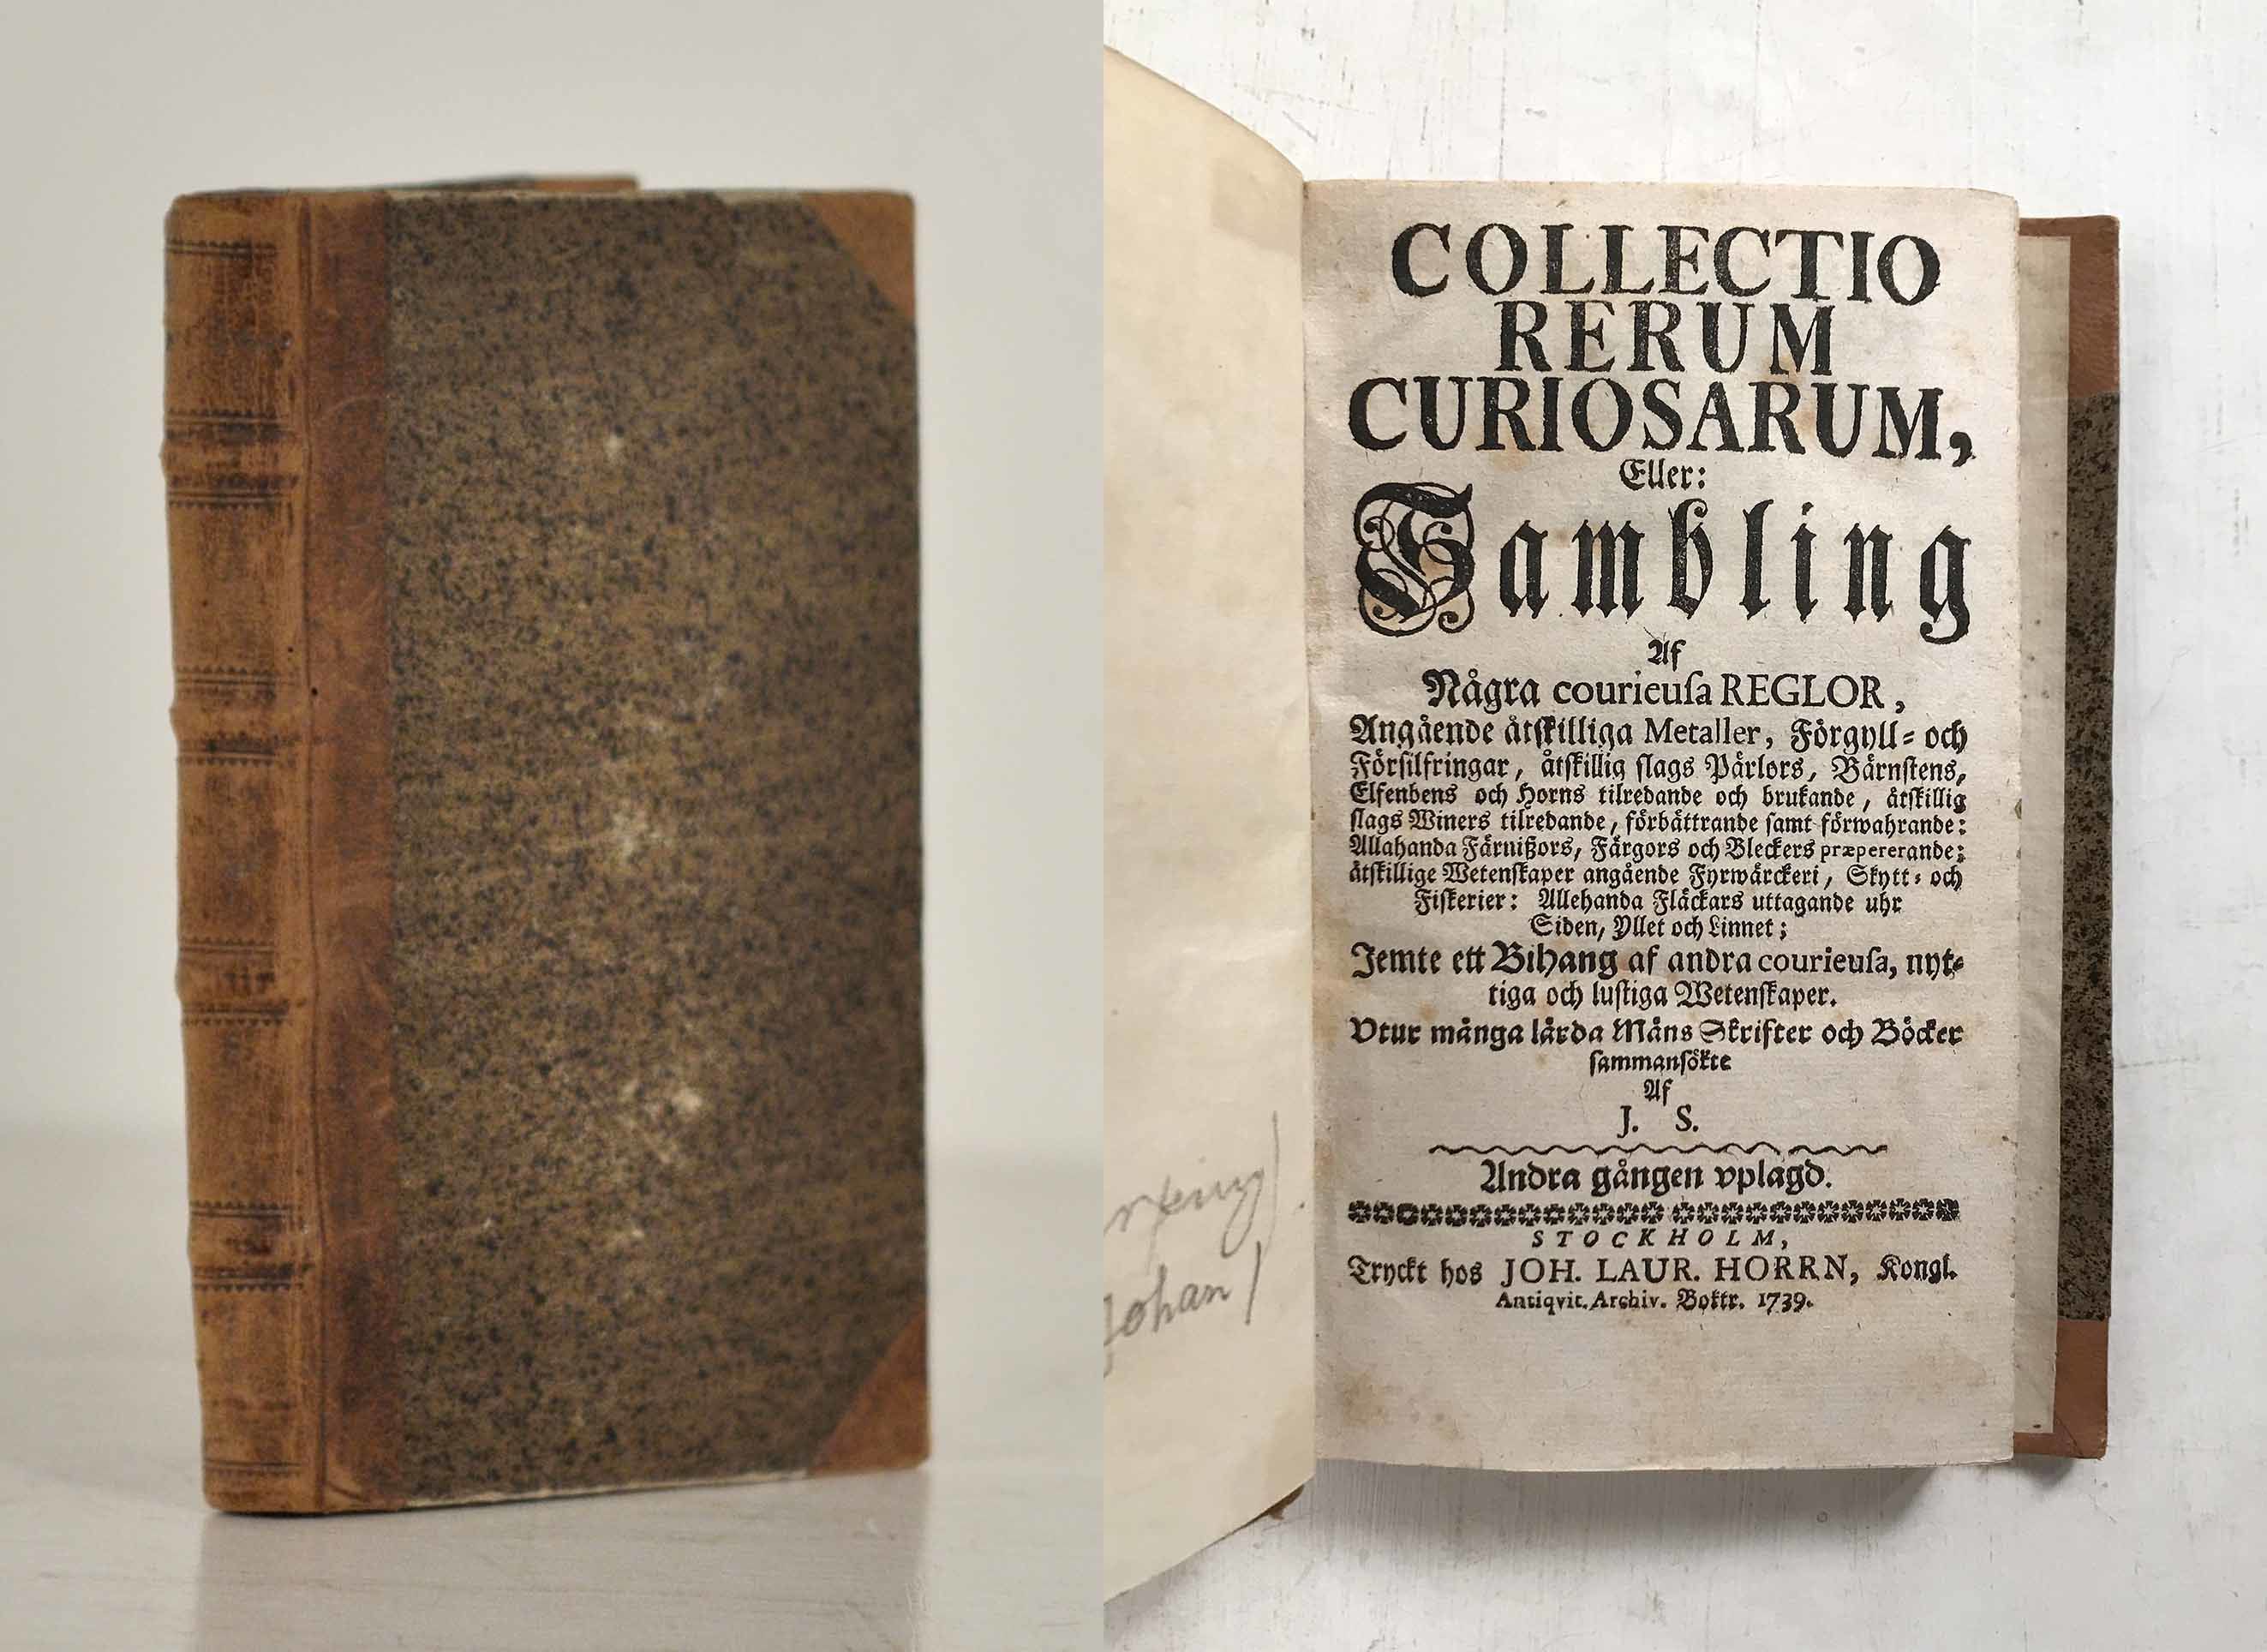 COLLECTIO
RERUM
CURIOSARUM,
Eller:
Sambling
Af
Några courieuſa REGLOR,
Angående åtſkilliga Metaller, Förgyll- och
Förſilfringar, åtſkillig ſlags Pärlors, Bärnſtens,
Elfenbens och Horns tilredande och brukande, åtſkillig
ſlags Winers tilredande, förbättrande ſamt förwahrande:
Allahanda Färnißors, Färgors och Bleckers præpererande;
åtſkillige Wetenſkaper angående Fyrwärckeri, Skytt- och
Fiſkerier: Allehanda Fläckars uttagande uhr
Siden, Yllet och Linnet;
Jemte ett Bihang af andra courieuſa, nyt-
tiga och luſtiga Wetenſkaper.
Vtur många lärda Mäns Skrifter och Böcker
ſammanſökte
Af
J. S.
Andra gången vplagd.
STOCKHOLM,
Tryckt hos JOH. LAUR. HORRN, Kongl.
Antiqvit. Archiv. Boktr. 1739.
Johan